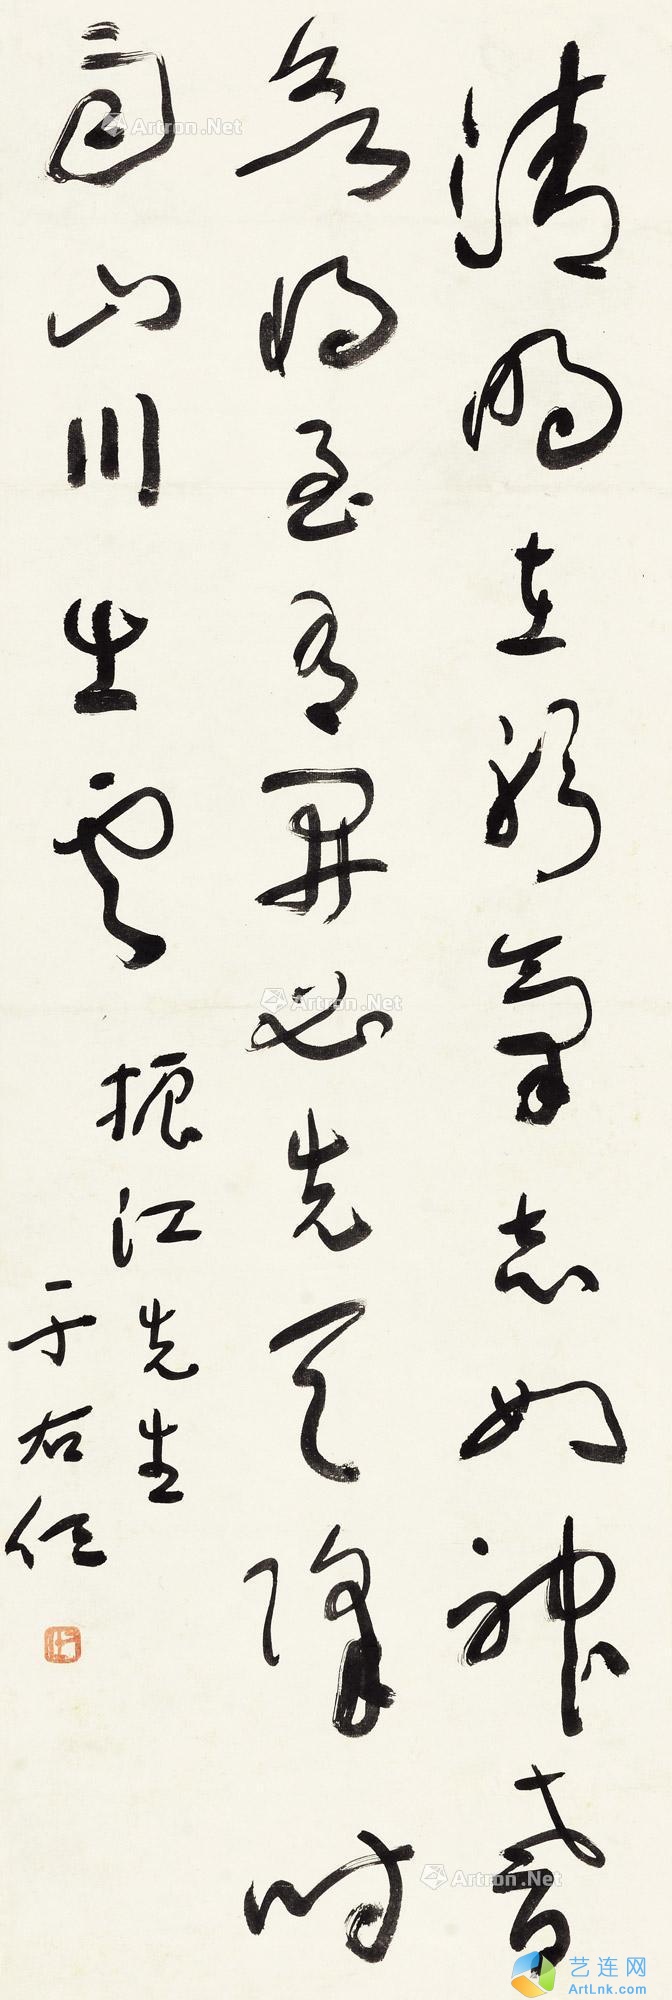 清明在躬氣志如神耆
欲將至有開必先天降時
雨山川出雲
振江先生
于右任
Artron.Net
Artron.Net
Artron.Net
艺连网
ArtLnk.com